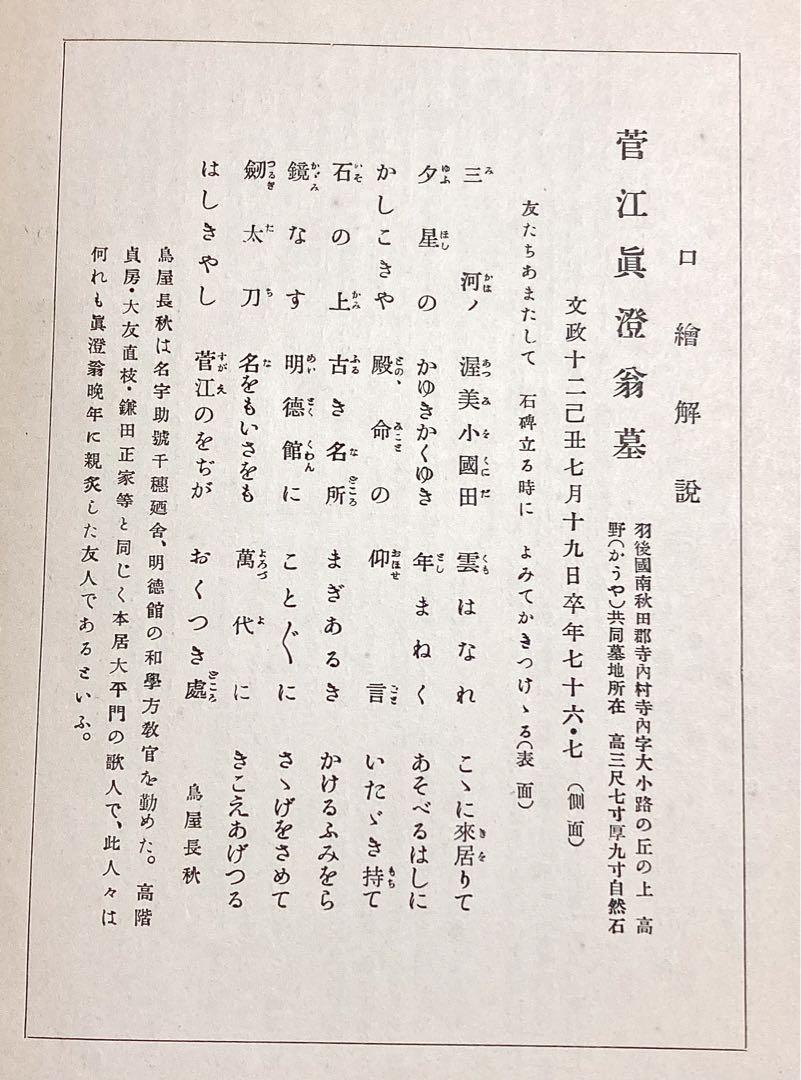 口繪解說
菅江眞澄翁墓
羽後國南秋田郡寺內村寺內字大小路の丘の上 高
野(かうや)共同墓地所在 高三尺七寸厚九寸自然石
文政十二己丑七月十九日卒年七十六・七 (側面)
友たちあまたして 石碑立る時に よみてかきつけゝる(表面)
三河ノ 渥美小國田 雲はなれ こゝに來居りて
夕星の かゆきかくゆき 年まねく あそべるはしに
かしこきや 殿、命の 仰言 いたゞき持て
石の上 古き名所 まぎあるき かけるふみをら
鏡なす 明德館に ことぐ〱に さゝげをさめて
劒太刀 名をもいさをも 萬代に きこえあげつる
はしきやし 菅江のをぢが おくつき處
鳥屋長秋
鳥屋長秋は名字助號千穗廼舍、明德館の和學方敎官を勤めた。高階
貞房・大友直枝・鎌田正家等と同じく本居大平門の歌人で、此人々は
何れも眞澄翁晩年に親炙した友人であるといふ。